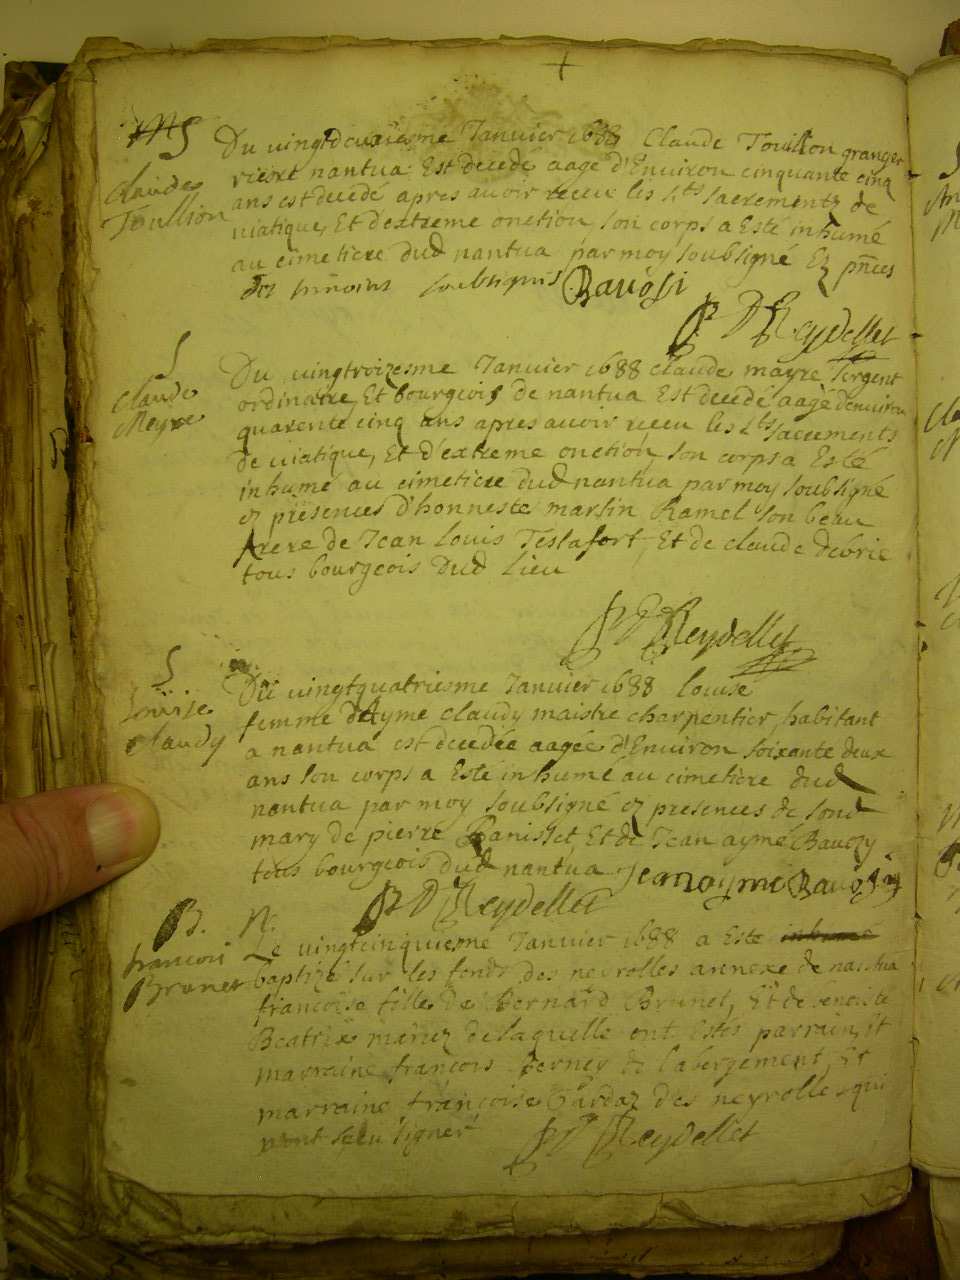 S
Claude
Toullion
Du vingtdeuxiesme Janvier 1688 Claude Touillon granger
riere nantua Est decedé aagé d'Environ cinquante cinq
ans est decedé apres avoir receu les Sts sacrements de
viatique, Et d'extreme onction, son corps a Esté inhumé
au cimetiere dud nantua par moy soubsigné Ez pñces
des soubsignés Ravosi
P D Reydellet
S
Claude
Meyre
Du vingtroizesme Janvier 1688 Claude mayre sergent
ordinaire, Et bourgeois de nantua Est decedé aagé denviron
quarente cinq ans apres avoir receu les Sts sacrements
de viatique, Et d'extreme onction, son corps a Esté
inhumé au cimetiere dud nantua par moy soubsigné
ez présences d'honneste martin Ramel son beau
frere de Jean Louis Testafort, Et de claude debrie
tous bourgeois dud Lieu
P D Reydellet
S
Louise
Claudy
Du vingtquatriesme Janvier 1688 Louise
femme d'Ayme claudy maistre charpentier habitant
a nantua est decedée aagée d'Environ soixante deux
ans son corps a Esté inhumé au cimetiere dud
nantua par moy soubsigné ez presences de sond
mary de pierre Panisset, Et de Jean aymé Ravozy
tous bourgeois dud nantua Jean ayme Ravosy
P D Reydellet
B. N.
francois
Brunet
Le vingtcinquiesme Janvier 1688 a Esté inhumé
baptizé sur les fonds des neyrolles annexe de nantua
francoise fille de Bernard Brunet, Et de benoiste
Beatrix mariez de laquelle ont Estés parrain, Et
marraine francois Berney de labergement, Et
marraine françoise Tardaz des neyrolles qui
n'ont sceu signer P D Reydellet